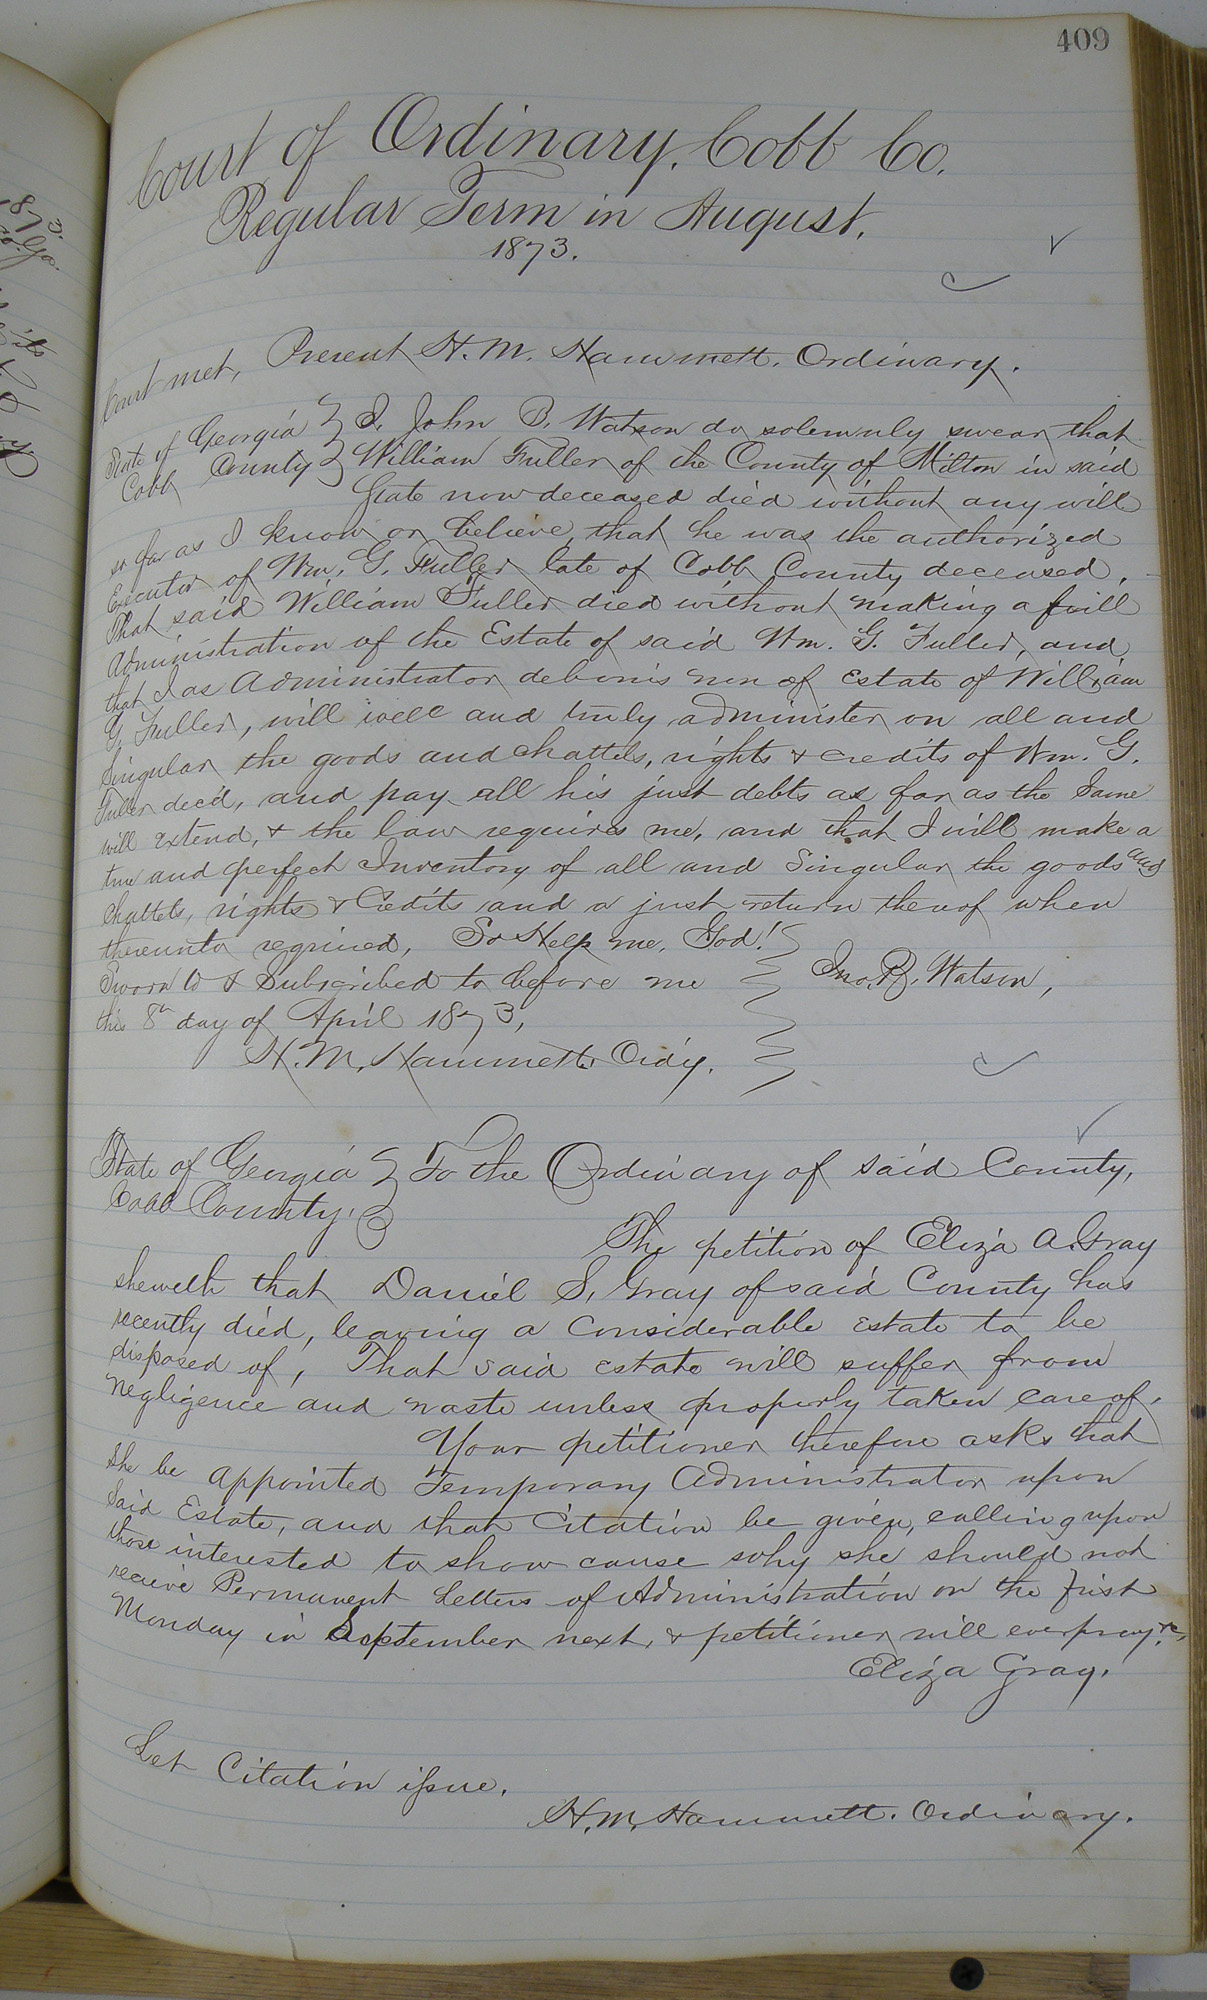 409
Court of Ordinary, Cobb Co.
Regular Term in August,
1873.
Court met, Present H. M. Hammett. Ordinary.
State of Georgia } I, John B. Watson do solemnly swear that
Cobb County } William Fuller of the County of Milton in said
State now deceased died without any will
so far as I know or believe, that he was the authorized
Executor of Wm. G. Fuller late of Cobb County deceased,
That said William Fuller died without making a full
Administration of the Estate of said Wm. G. Fuller, and
that I as Administrator debonis non of Estate of William
G. Fuller, will well and truly administer on all and
Singular the goods and chattels, rights & credits of Wm. G.
Fuller dec'd, and pay all his just debts as far as the Same
will extend, & the law requires me, and that I will make a
true and perfect Inventory of all and Singular the goods and
Chattels, rights & Credits and a just return thereof when
thereunto required, So Help me, God!
Sworn to & Subscribed to before me } Jno. B. Watson,
this 8th day of April 1873,
H. M. Hammett. Ord'y.
State of Georgia } To the Ordinary of said County,
Cobb County. }
The petition of Eliza A. Gray
sheweth that Daniel S. Gray of said County has
recently died, leaving a Considerable Estate to be
disposed of, That said estate will suffer from
negligence and waste unless properly taken care of.
Your petitioner therefore asks that
she be appointed Temporary Administrator upon
Said Estate, and that Citation be given, calling upon
those interested to show cause why she should not
receive Permanent Letters of Administration on the first
Monday in September next, & petitioner will ever pray &c,
Eliza Gray.
Let Citation issue.
H. M. Hammett. Ordinary.